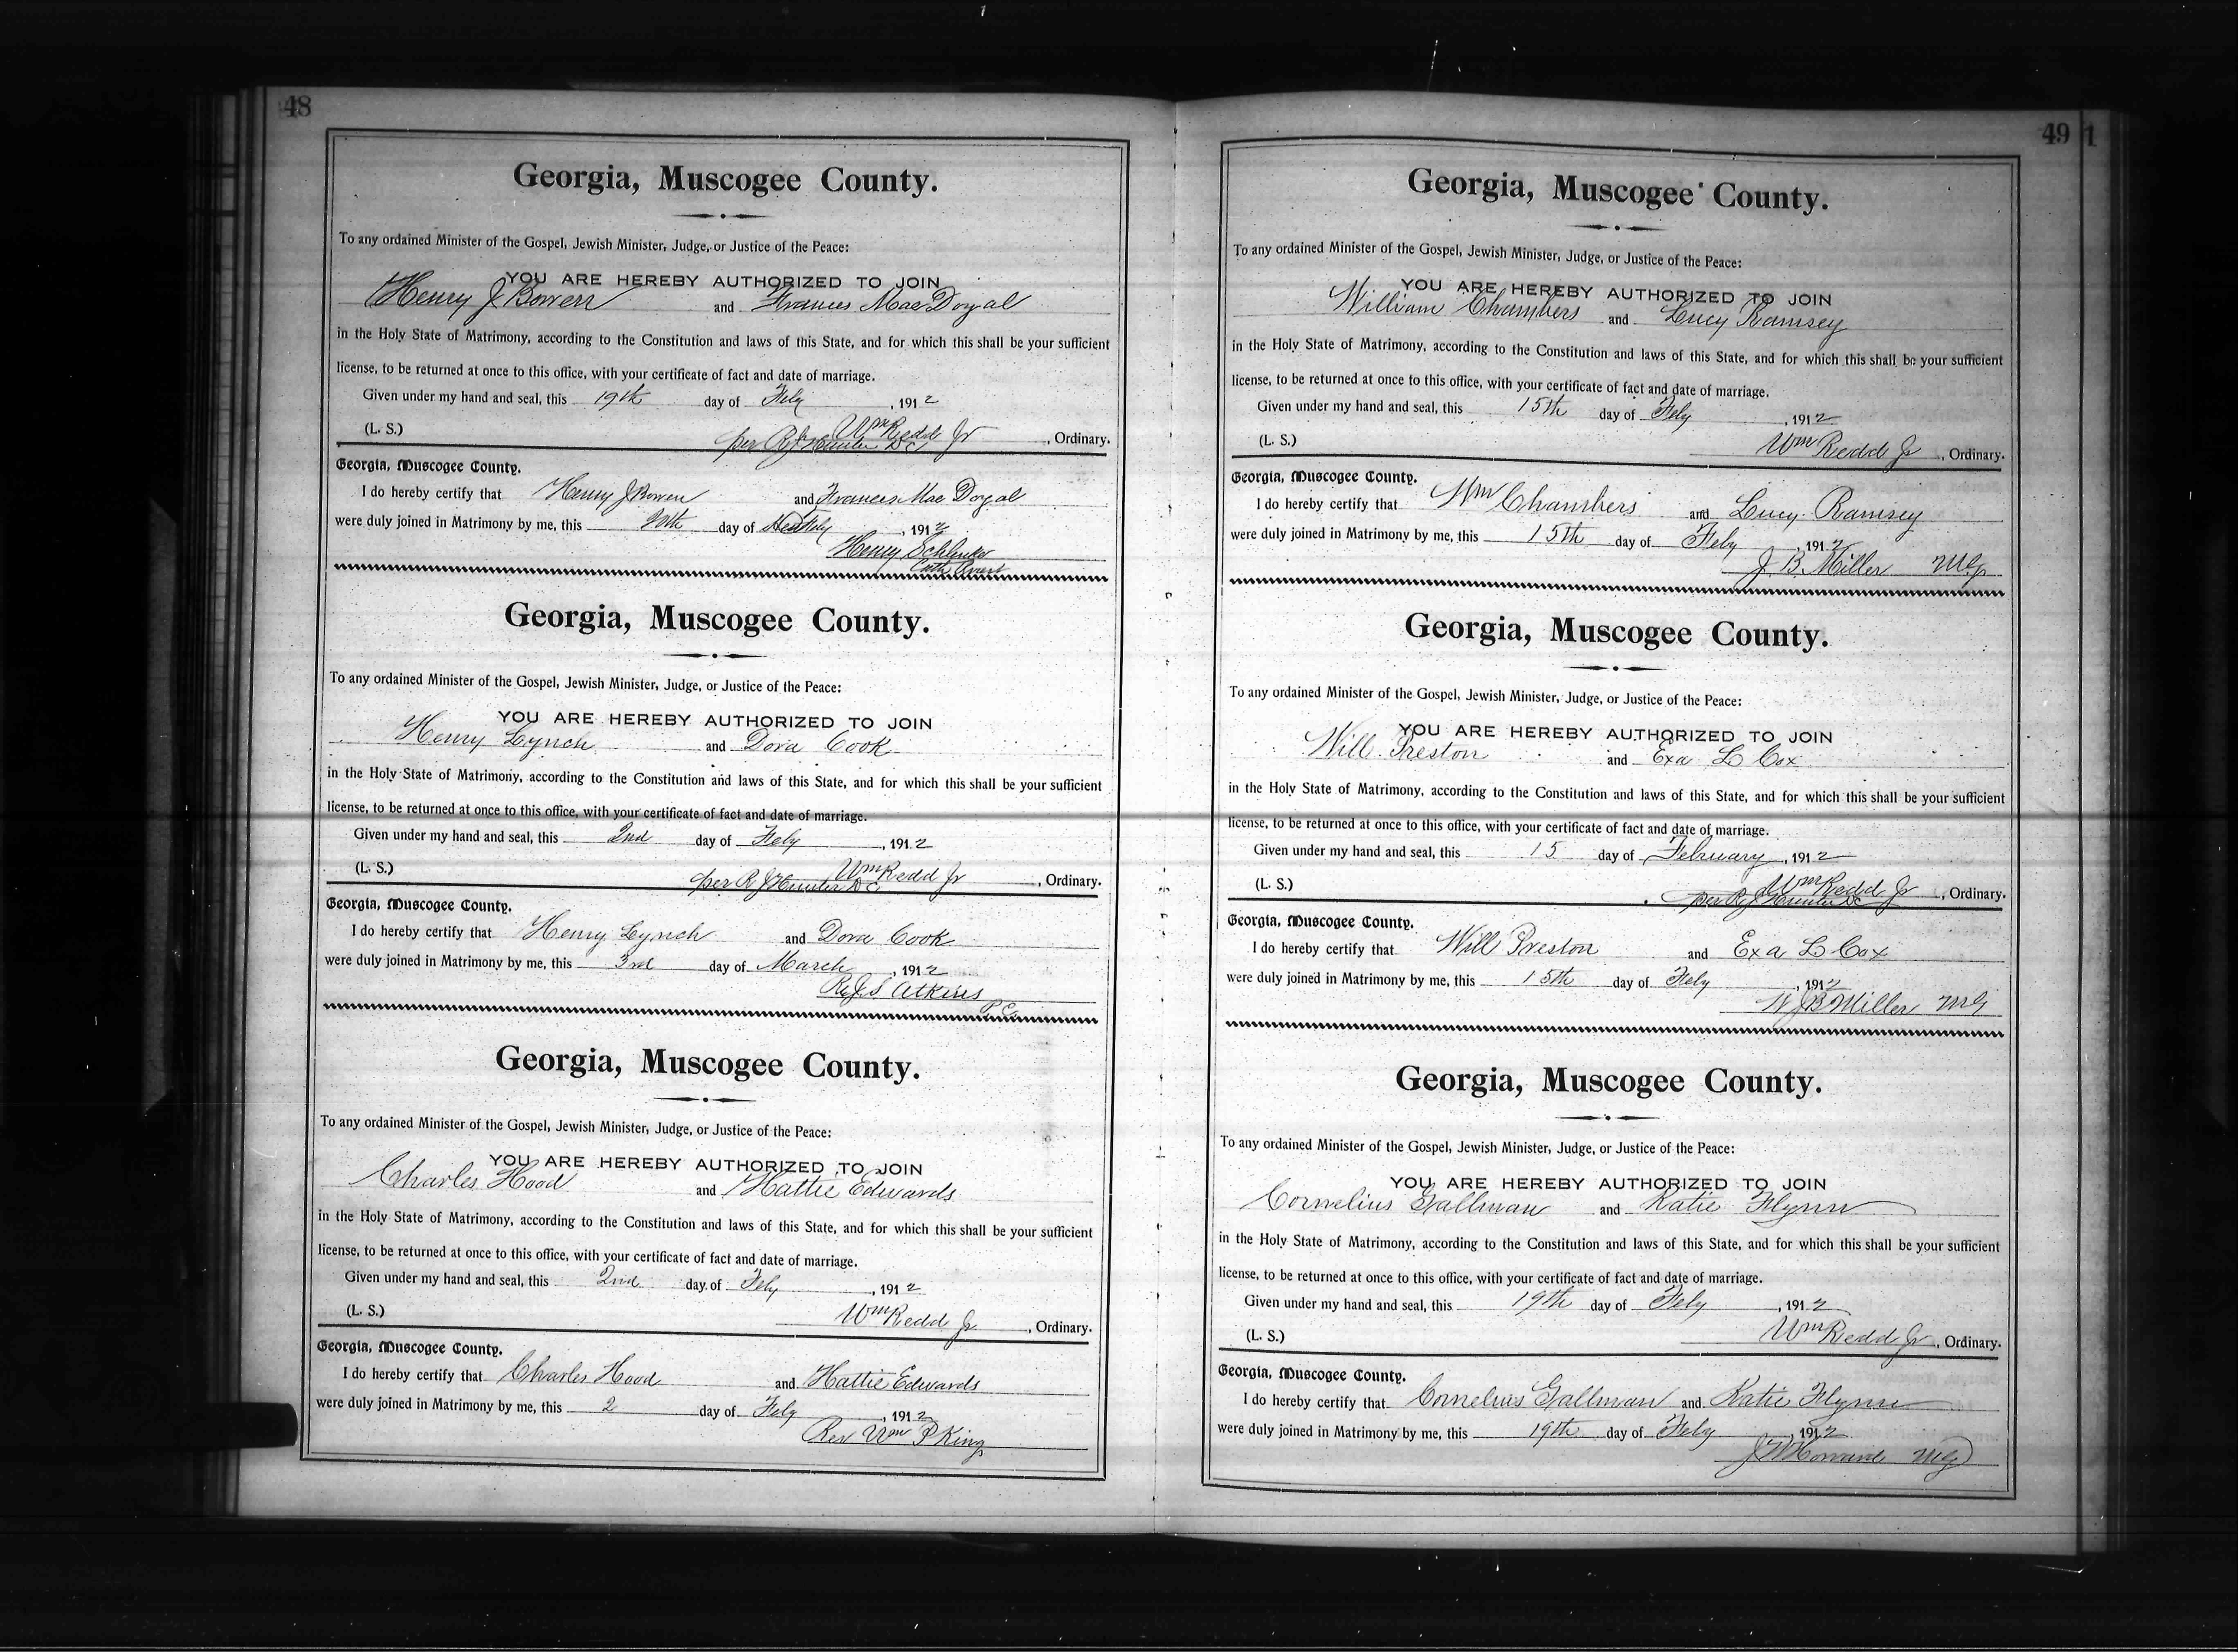 48
Georgia, Muscogee County.
To any ordained Minister of the Gospel, Jewish Minister, Judge, or Justice of the Peace:
YOU ARE HEREBY AUTHORIZED TO JOIN
Henry J Bowen and Frances Mae Doyal
in the Holy State of Matrimony, according to the Constitution and laws of this State, and for which this shall be your sufficient
license, to be returned at once to this office, with your certificate of fact and date of marriage.
Given under my hand and seal, this 19th day of Feby , 1912
(L. S.) Wm Redd Jr , Ordinary.
per R J Hunter D C
Georgia, Muscogee County.
I do hereby certify that Henry J Bowen and Frances Mae Doyal
were duly joined in Matrimony by me, this 20th day of Feby , 1912
Henry
Georgia, Muscogee County.
To any ordained Minister of the Gospel, Jewish Minister, Judge, or Justice of the Peace:
YOU ARE HEREBY AUTHORIZED TO JOIN
Henry Lynch and Dora Cook
in the Holy State of Matrimony, according to the Constitution and laws of this State, and for which this shall be your sufficient
license, to be returned at once to this office, with your certificate of fact and date of marriage.
Given under my hand and seal, this 2nd day of Feby , 1912
(L. S.) Wm Redd Jr , Ordinary.
per R J Hunter D C
Georgia, Muscogee County.
I do hereby certify that Henry Lynch and Dora Cook
were duly joined in Matrimony by me, this 3rd day of March , 1912
S Atkins
Georgia, Muscogee County.
To any ordained Minister of the Gospel, Jewish Minister, Judge, or Justice of the Peace:
YOU ARE HEREBY AUTHORIZED TO JOIN
Charles Hood and Hattie Edwards
in the Holy State of Matrimony, according to the Constitution and laws of this State, and for which this shall be your sufficient
license, to be returned at once to this office, with your certificate of fact and date of marriage.
Given under my hand and seal, this 2nd day of Feby , 1912
(L. S.) Wm Redd Jr , Ordinary.
Georgia, Muscogee County.
I do hereby certify that Charles Hood and Hattie Edwards
were duly joined in Matrimony by me, this 2 day of Feby , 1912
Rev Wm P King
49 1
Georgia, Muscogee County.
To any ordained Minister of the Gospel, Jewish Minister, Judge, or Justice of the Peace:
YOU ARE HEREBY AUTHORIZED TO JOIN
William Chambers and Lucy Ramsey
in the Holy State of Matrimony, according to the Constitution and laws of this State, and for which this shall be your sufficient
license, to be returned at once to this office, with your certificate of fact and date of marriage.
Given under my hand and seal, this 15th day of Feby , 1912
(L. S.) Wm Redd Jr , Ordinary.
Georgia, Muscogee County.
I do hereby certify that Wm Chambers and Lucy Ramsey
were duly joined in Matrimony by me, this 15th day of Feby , 1912
J. B. Miller MG
Georgia, Muscogee County.
To any ordained Minister of the Gospel, Jewish Minister, Judge, or Justice of the Peace:
YOU ARE HEREBY AUTHORIZED TO JOIN
Will Preston and Exa L Cox
in the Holy State of Matrimony, according to the Constitution and laws of this State, and for which this shall be your sufficient
license, to be returned at once to this office, with your certificate of fact and date of marriage.
Given under my hand and seal, this 15 day of February , 1912
(L. S.) Wm Redd Jr , Ordinary.
per R J Hunter D C
Georgia, Muscogee County.
I do hereby certify that Will Preston and Exa L Cox
were duly joined in Matrimony by me, this 15th day of Feby , 1912
J B Miller MG
Georgia, Muscogee County.
To any ordained Minister of the Gospel, Jewish Minister, Judge, or Justice of the Peace:
YOU ARE HEREBY AUTHORIZED TO JOIN
Cornelius Gallman and Katie Flynn
in the Holy State of Matrimony, according to the Constitution and laws of this State, and for which this shall be your sufficient
license, to be returned at once to this office, with your certificate of fact and date of marriage.
Given under my hand and seal, this 19th day of Feby , 1912
(L. S.) Wm Redd Jr , Ordinary.
Georgia, Muscogee County.
I do hereby certify that Cornelius Gallman and Katie Flynn
were duly joined in Matrimony by me, this 19th day of Feby , 1912
J W Howard MG